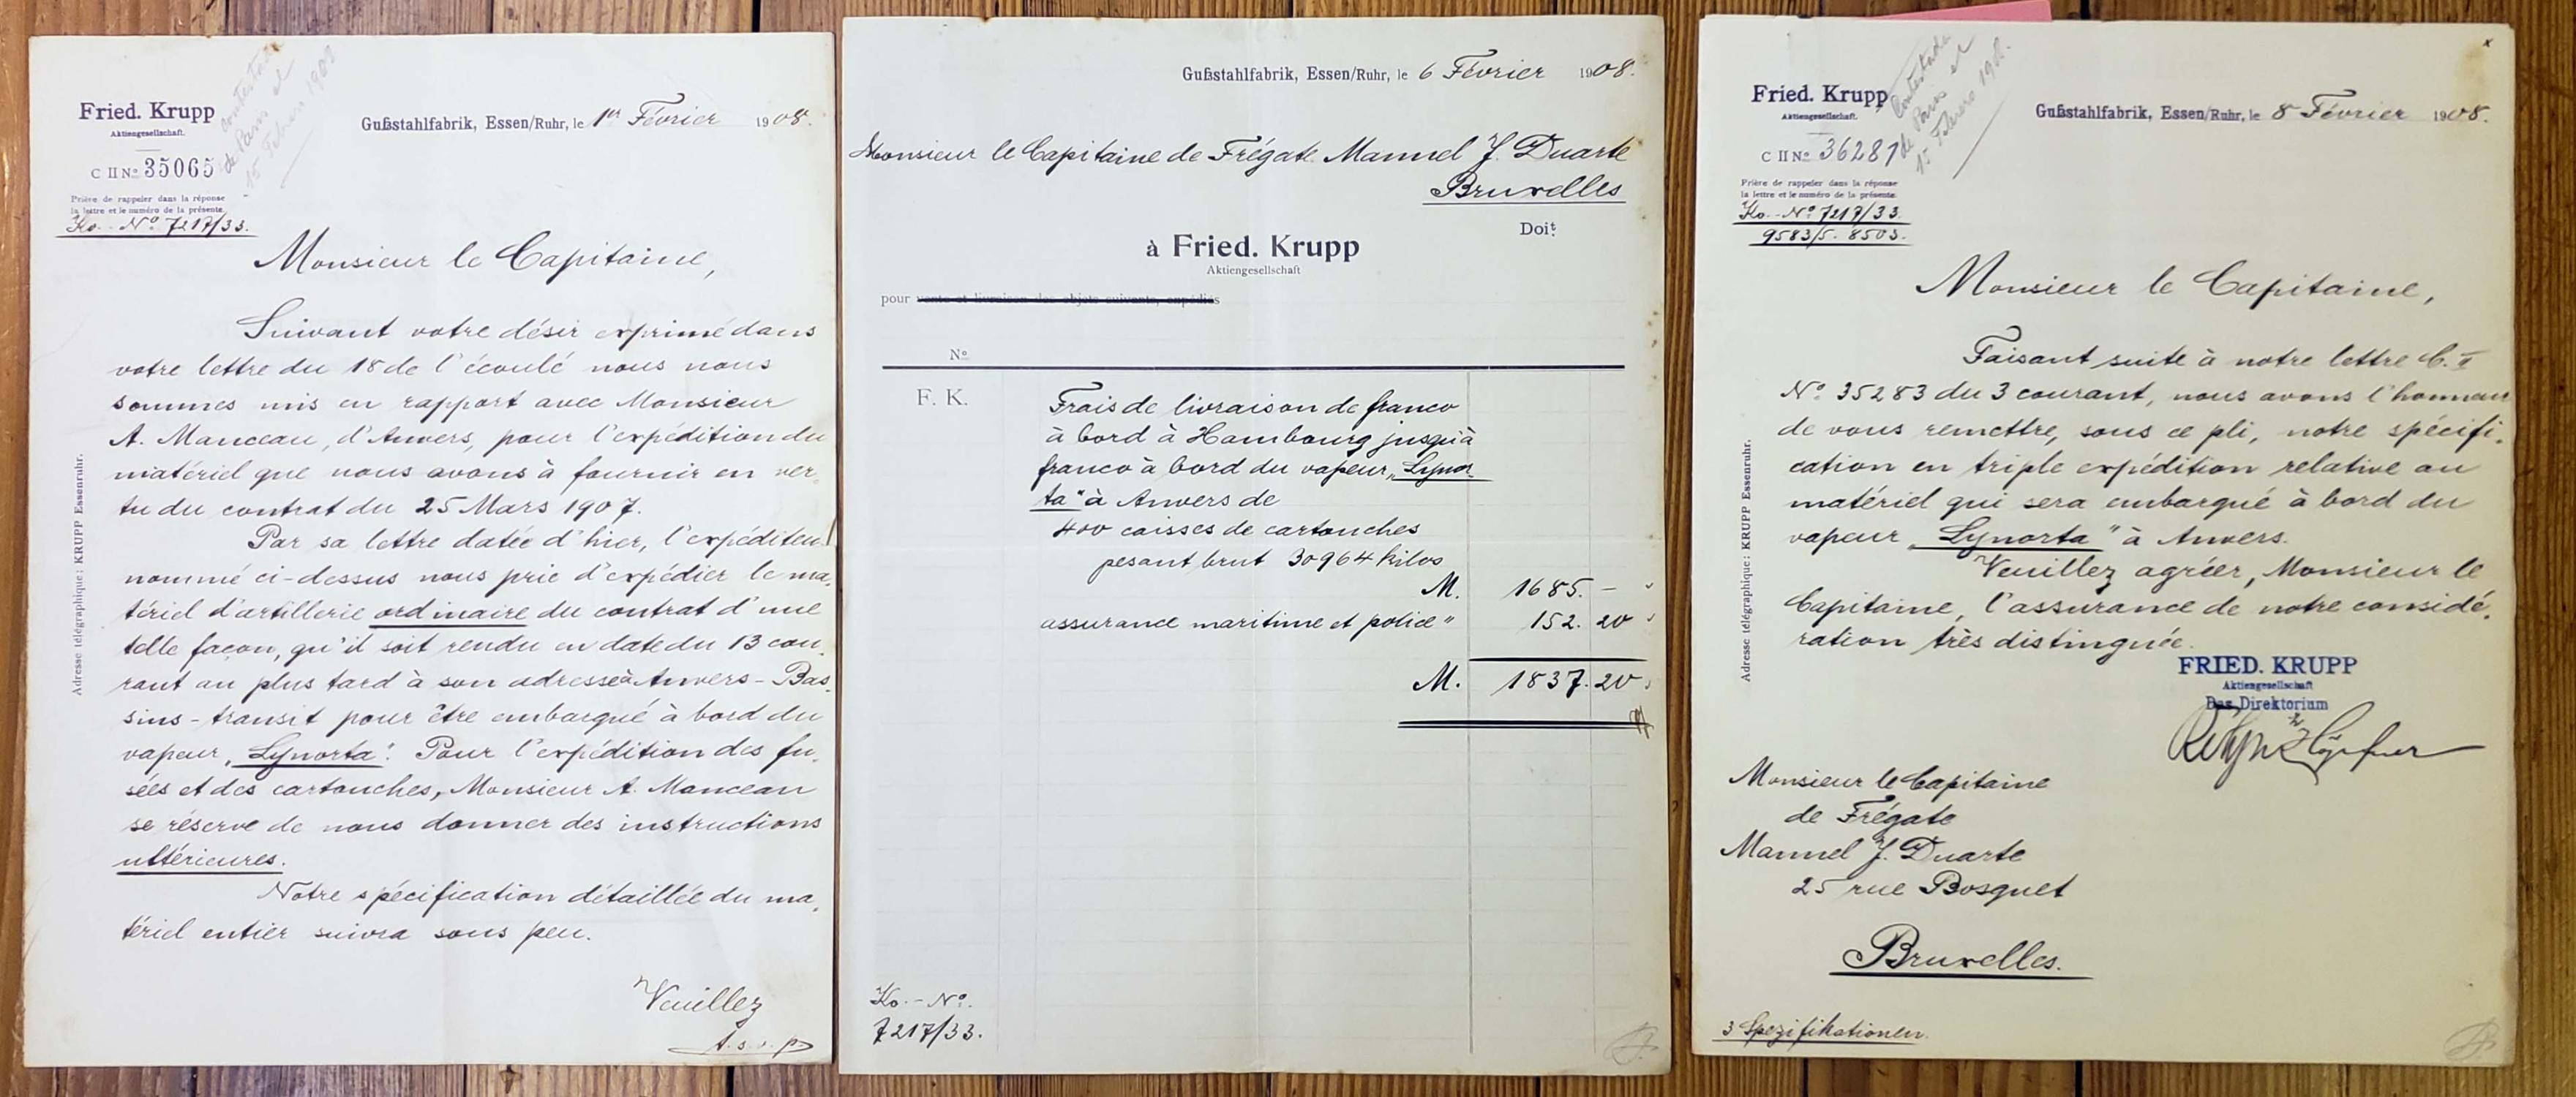 Contestada
de Paris el
15 Febrero 1908
Fried. Krupp
Aktiengesellschaft.
Gußstahlfabrik, Essen/Ruhr, le 1er Février 1908.
C II No. 35065
Prière de rappeler dans la réponse
la lettre et le numéro de la présente.
Ko.- No. 7217/33.
Monsieur le Capitaine,
Suivant votre désir exprimé dans
votre lettre du 18 de l'écoulé nous nous
sommes mis en rapport avec Monsieur
A. Manceau, d'Anvers, pour l'expédition du
matériel que nous avons à fournir en ver-
tu du contrat du 25 Mars 1907.
Par sa lettre datée d'hier, l'expéditeur
nommé ci-dessus nous prie d'expédier le ma-
tériel d'artillerie ordinaire du contrat d'une
telle façon, qu'il soit rendu en date du 13 cou-
rant au plus tard à son adresse à Anvers - Bas-
sins - transit pour être embarqué à bord du
vapeur „Lynorta". Pour l'expédition des fu-
sées et des cartouches, Monsieur A. Manceau
se réserve de nous donner des instructions
ultérieures.
Notre spécification détaillée du ma-
tériel entier suivra sous peu.
Veuillez
t. s. v. p.
Adresse télégraphique: KRUPP Essenruhr.
Gußstahlfabrik, Essen/Ruhr, le 6 Février 1908.
Monsieur le Capitaine de Frégate Manuel J. Duarte
Bruxelles
Doit
à Fried. Krupp
Aktiengesellschaft
pour vente et livraison des objets suivants, expédiés
No.
F. K.
Frais de livraison de franco
à bord à Hambourg jusqu'à
franco à bord du vapeur „Lynor-
ta" à Anvers de
400 caisses de cartouches
pesant brut 30964 kilos
M. 1685. –
assurance maritime et police " 152. 20
M. 1837. 20
Ko.- No.
7217/33.
Contestada
de Paris el
15 Febrero 1908.
x
Fried. Krupp
Aktiengesellschaft.
Gußstahlfabrik, Essen/Ruhr, le 8 Février 1908.
C II No. 36281
Prière de rappeler dans la réponse
la lettre et le numéro de la présente.
Ko.- No. 7217/33.
9583/5. 8503.
Monsieur le Capitaine,
Faisant suite à notre lettre C. II
No. 35283 du 3 courant, nous avons l'honneur
de vous remettre, sous ce pli, notre spécifi-
cation en triple expédition relative au
matériel qui sera embarqué à bord du
vapeur „Lynorta" à Anvers.
Veuillez agréer, Monsieur le
Capitaine, l'assurance de notre considé-
ration très distinguée.
FRIED. KRUPP
Aktiengesellschaft
Das Direktorium
Monsieur le Capitaine
de Frégate
Manuel J. Duarte
25 rue Bosquet
Bruxelles.
3 Spezifikationen.
Adresse télégraphique: KRUPP Essenruhr.